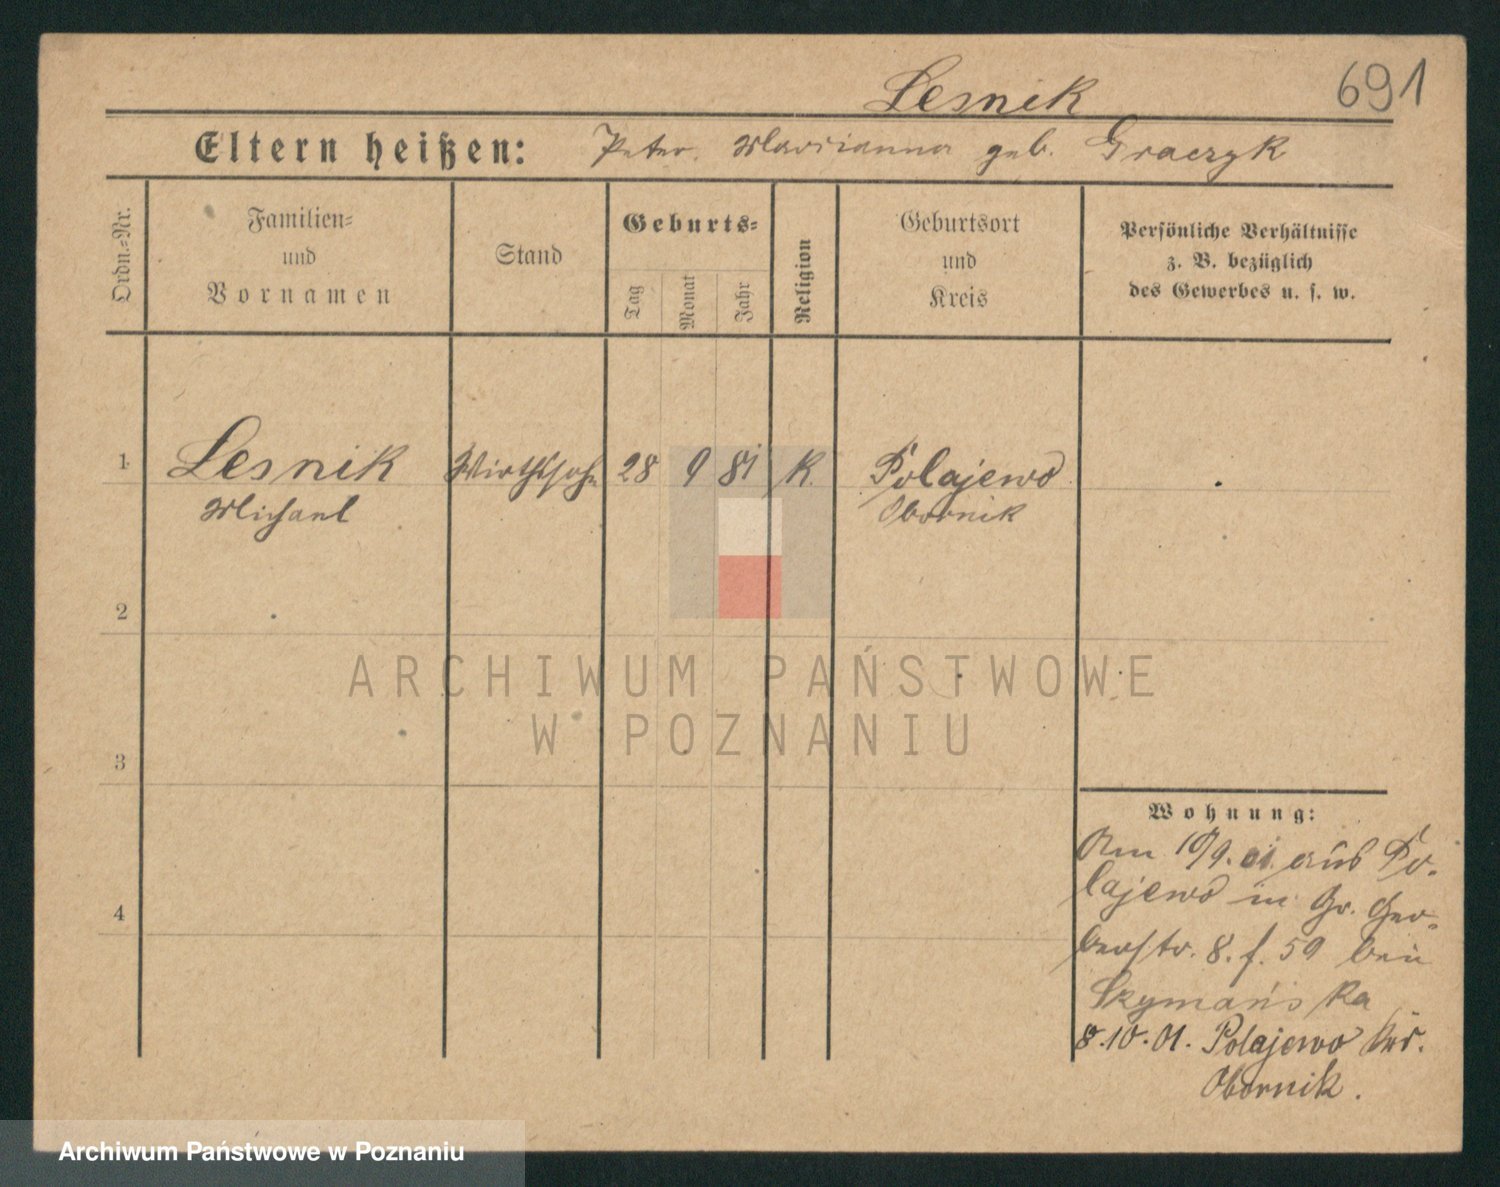 Lesnik
691
Eltern heißen: Peter. Marianna geb. Graczyk
Ordn.-Nr.
Familien-
und
Vornamen
Stand
Geburts-
Tag
Monat
Jahr
Religion
Geburtsort
und
Kreis
Persönliche Verhältnisse
z. B. bezüglich
des Gewerbes u. s. w.
1 Lesnik Wirthssohn 28 9 81 K. Polajewo
Michael Obornik
2
ARCHIWUM PAŃSTWOWE
W POZNANIU
3
Wohnung:
Am 10/9. 01. aus Po-
lajewo in Gr. Ger-
berstr. 8. f. 59 bei
Skymańska
4
8.10.01. Polajewo Krs.
Obornik.
Archiwum Państwowe w Poznaniu